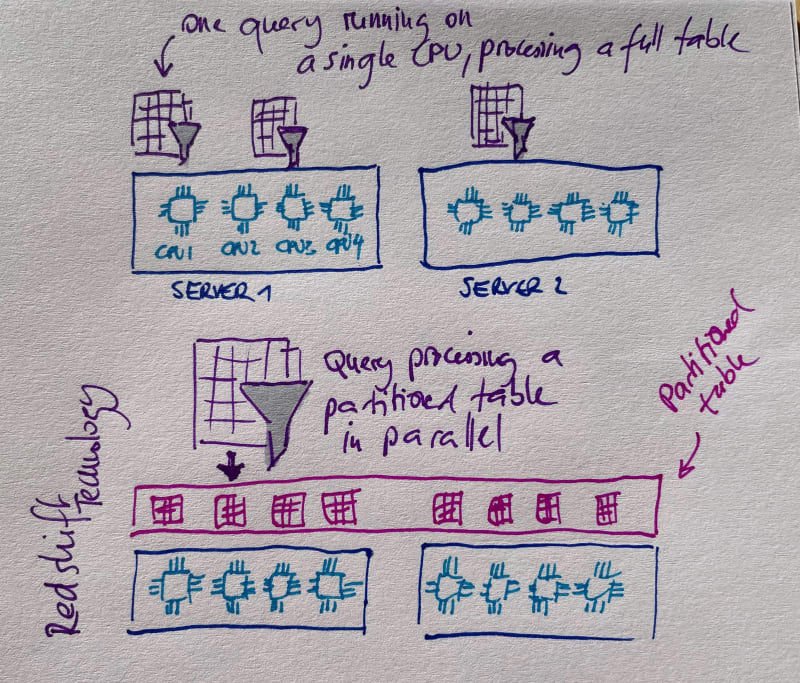 one query running on
a single CPU, processing a full table
CPU1 CPU2 CPU3 CPU4
SERVER 1
SERVER 2
Query processing a
partitioned table
in parallel
Partitioned
table
Redshift
Technology